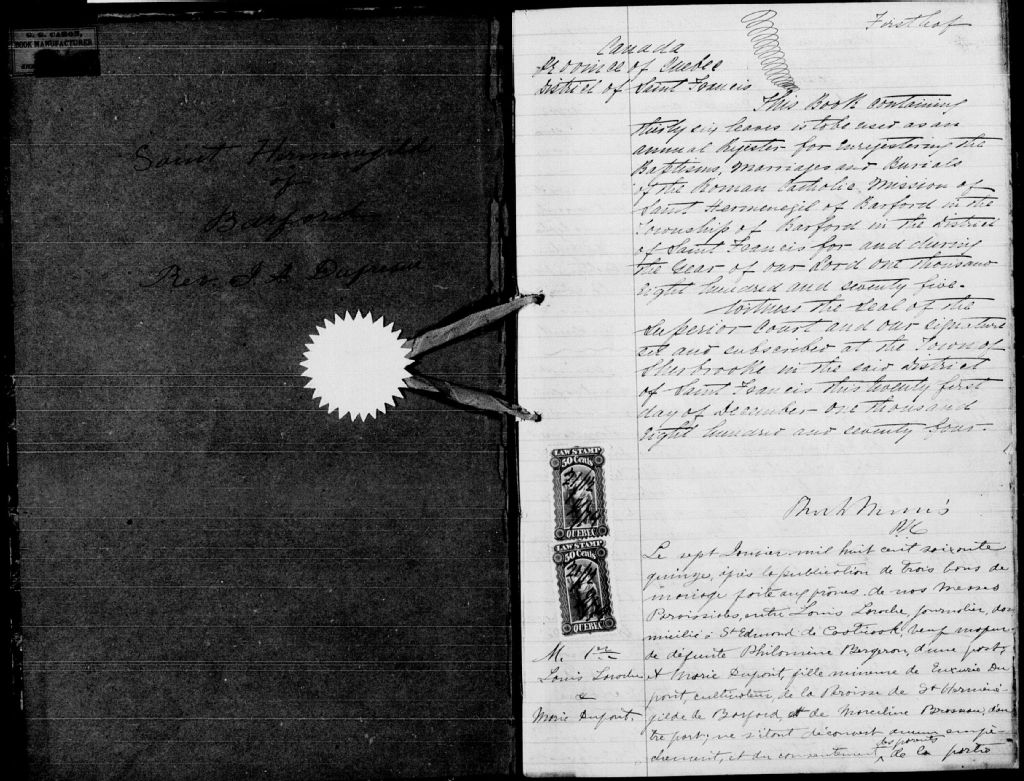 BOOK MANUFACTURER
Saint Hermenegilde
of
Barford
Rev. J. A. Dufresne
First leaf
Canada
Province of Quebec
District of Saint Francis
This Book containing
thirty six leaves is to be used as an
annual Register for Enregistering the
Baptisms, Marriages and Burials
of the Roman Catholic Mission of
Saint Hermenegil of Barford in the
Township of Barford in the District
of Saint Francis for and during
the year of our Lord one thousand
Eight hundred and seventy five.
Witness the Seal of the
Superior Court and our signature
set and subscribed at the Town of
Sherbrooke in the said District
of Saint Francis this twenty first
day of December one thousand
Eight hundred and seventy four.
LAW STAMP
50 Cents
QUEBEC
LAW STAMP
50 Cents
QUEBEC
M. 1er
Louis Laroche
&
Marie Dupont.
Le sept Janvier mil huit cent soixante
quinze, après la publication de trois bans de
mariage faite aux prones de nos Messes
Paroissiales, entre Louis Laroche, journalier, do-
micilié à St Edmond de Coaticook, veuf majeur
de défunte Philomène Bergeron, d'une part,
et Marie Dupont, fille mineure de Du
pont, cultivateur, de la Paroisse de St Herméné-
gilde de Barford, et de Marceline d'au
tre part; ne s'étant découvert aucun empê-
chement, et du consentement des parents de la partie